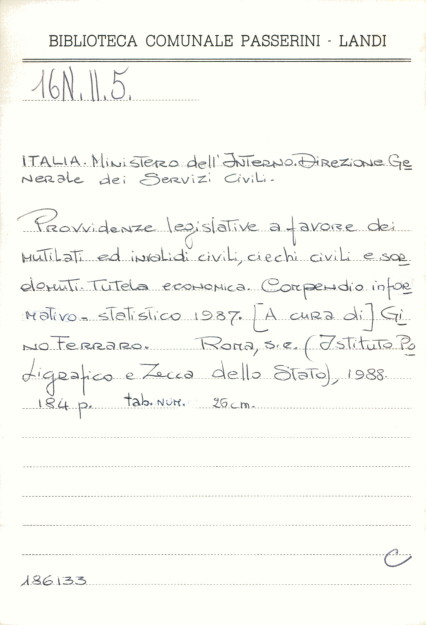 BIBLIOTECA COMUNALE PASSERINI - LANDI
16N.II.5.
ITALIA. Ministero dell'Interno. Direzione Ge
nerale dei Servizi Civili.
Provvidenze legislative a favore dei
mutilati ed invalidi civili, ciechi civili e sor
domuti. Tutela economica. Compendio infor
mativo-statistico 1987. [A cura di] Gi
no Ferraro. Roma, s.e. (Istituto Po
ligrafico e Zecca dello Stato), 1988.
184 p. tab. num. 26 cm.
C
186133